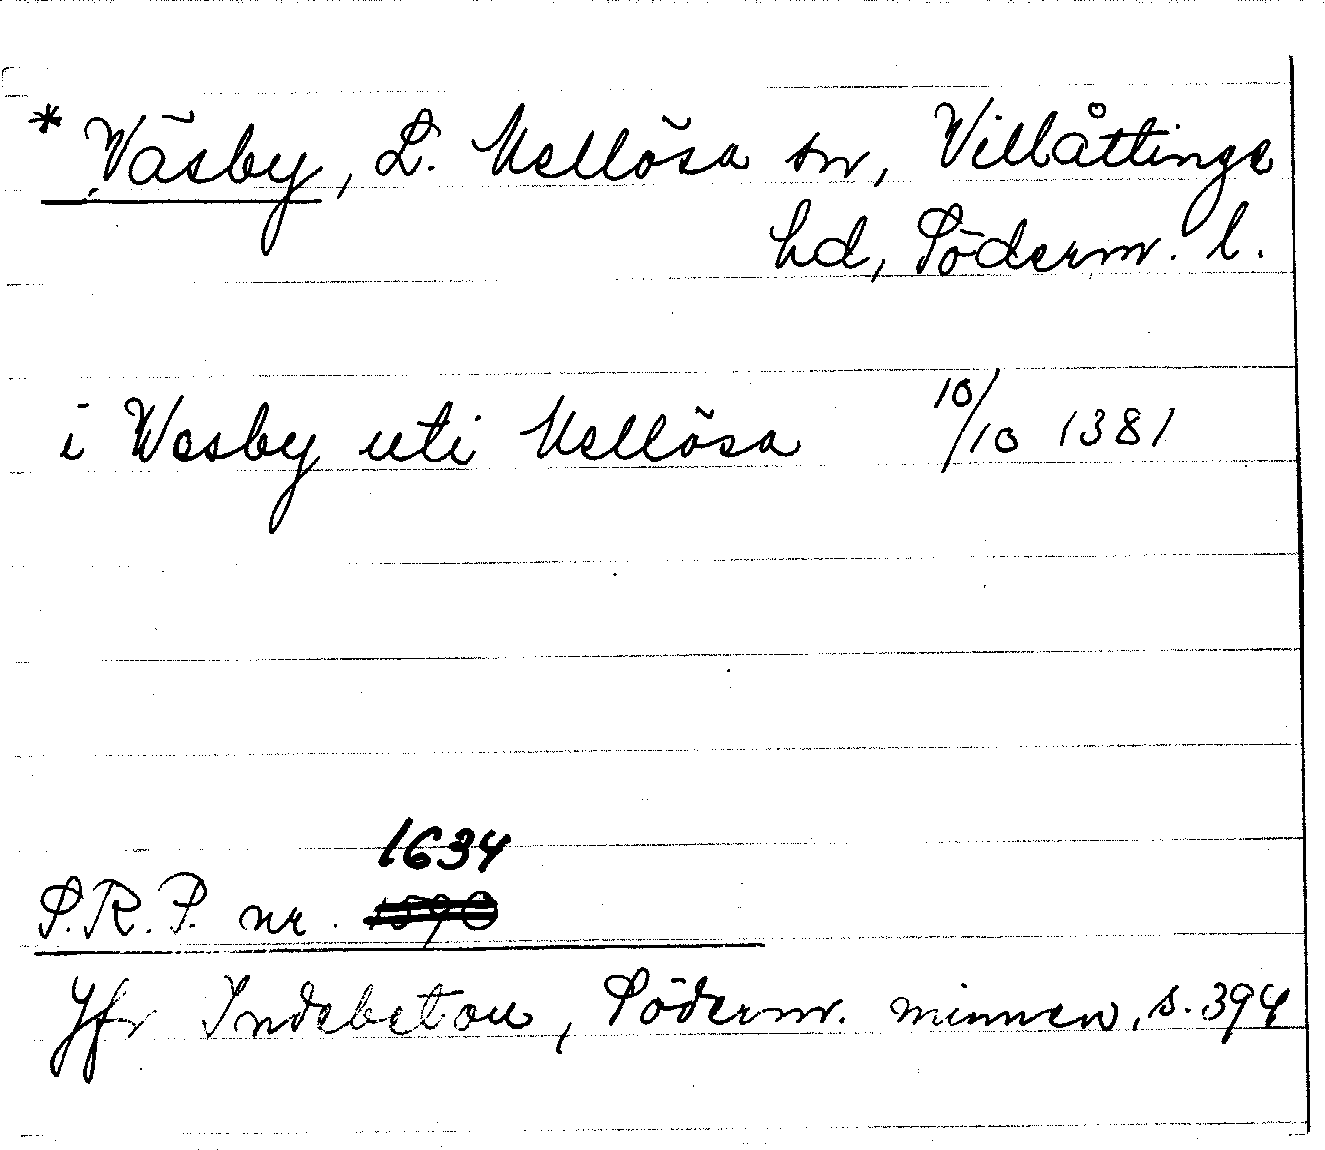 * Väsby, L. Mellösa sn, Villåttinge
hd, Söderm. l.
i Wesby uti Mellösa 10/10 1381
1634
S.R.P. nr.
Jfr Indebetou, Söderm. minnen, s. 394